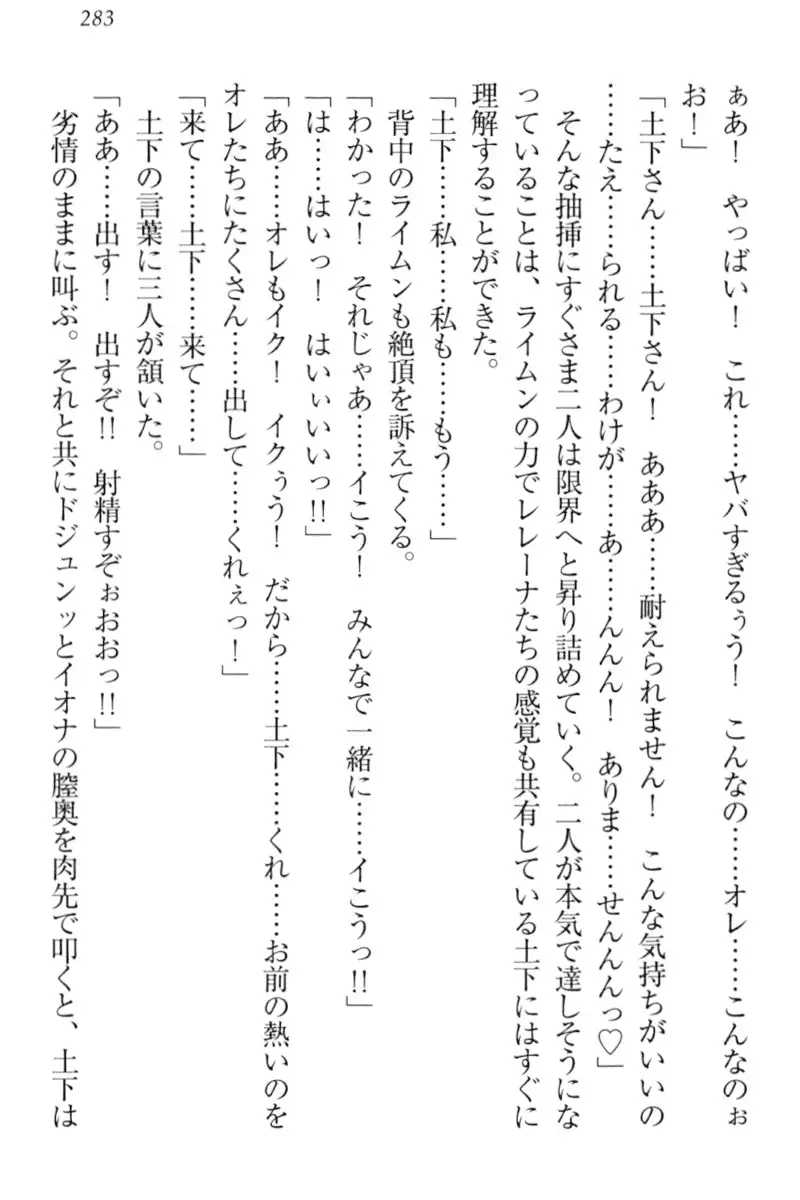 283
ぁあ！　やっばい！　これ……ヤバすぎるぅう！　こんなの……オレ……こんなのぉ
お！」
「土下さん……土下さん！　あああ……耐えられません！　こんな気持ちがいいの
……たえ……られる……わけが……あ……んんん！　ありま……せんんんっ♡」
　そんな抽挿にすぐさま二人は限界へと昇り詰めていく。二人が本気で達しそうにな
っていることは、ライムンの力でレレーナたちの感覚も共有している土下にはすぐに
理解することができた。
「土下……私……私も……もう……」
　背中のライムンも絶頂を訴えてくる。
「わかった！　それじゃあ……イこう！　みんなで一緒に……イこうっ!!」
「は……はいっ！　はいぃいいっ!!」
「ああ……オレもイク！　イクぅう！　だから……土下……くれ……お前の熱いのを
オレたちにたくさん……出して……くれぇっ！」
「来て……土下……来て……」
　土下の言葉に三人が頷いた。
「ああ……出す！　出すぞ!!　射精すぞぉおおっ!!」
　劣情のままに叫ぶ。それと共にドジュンッとイオナの膣奥を肉先で叩くと、土下は